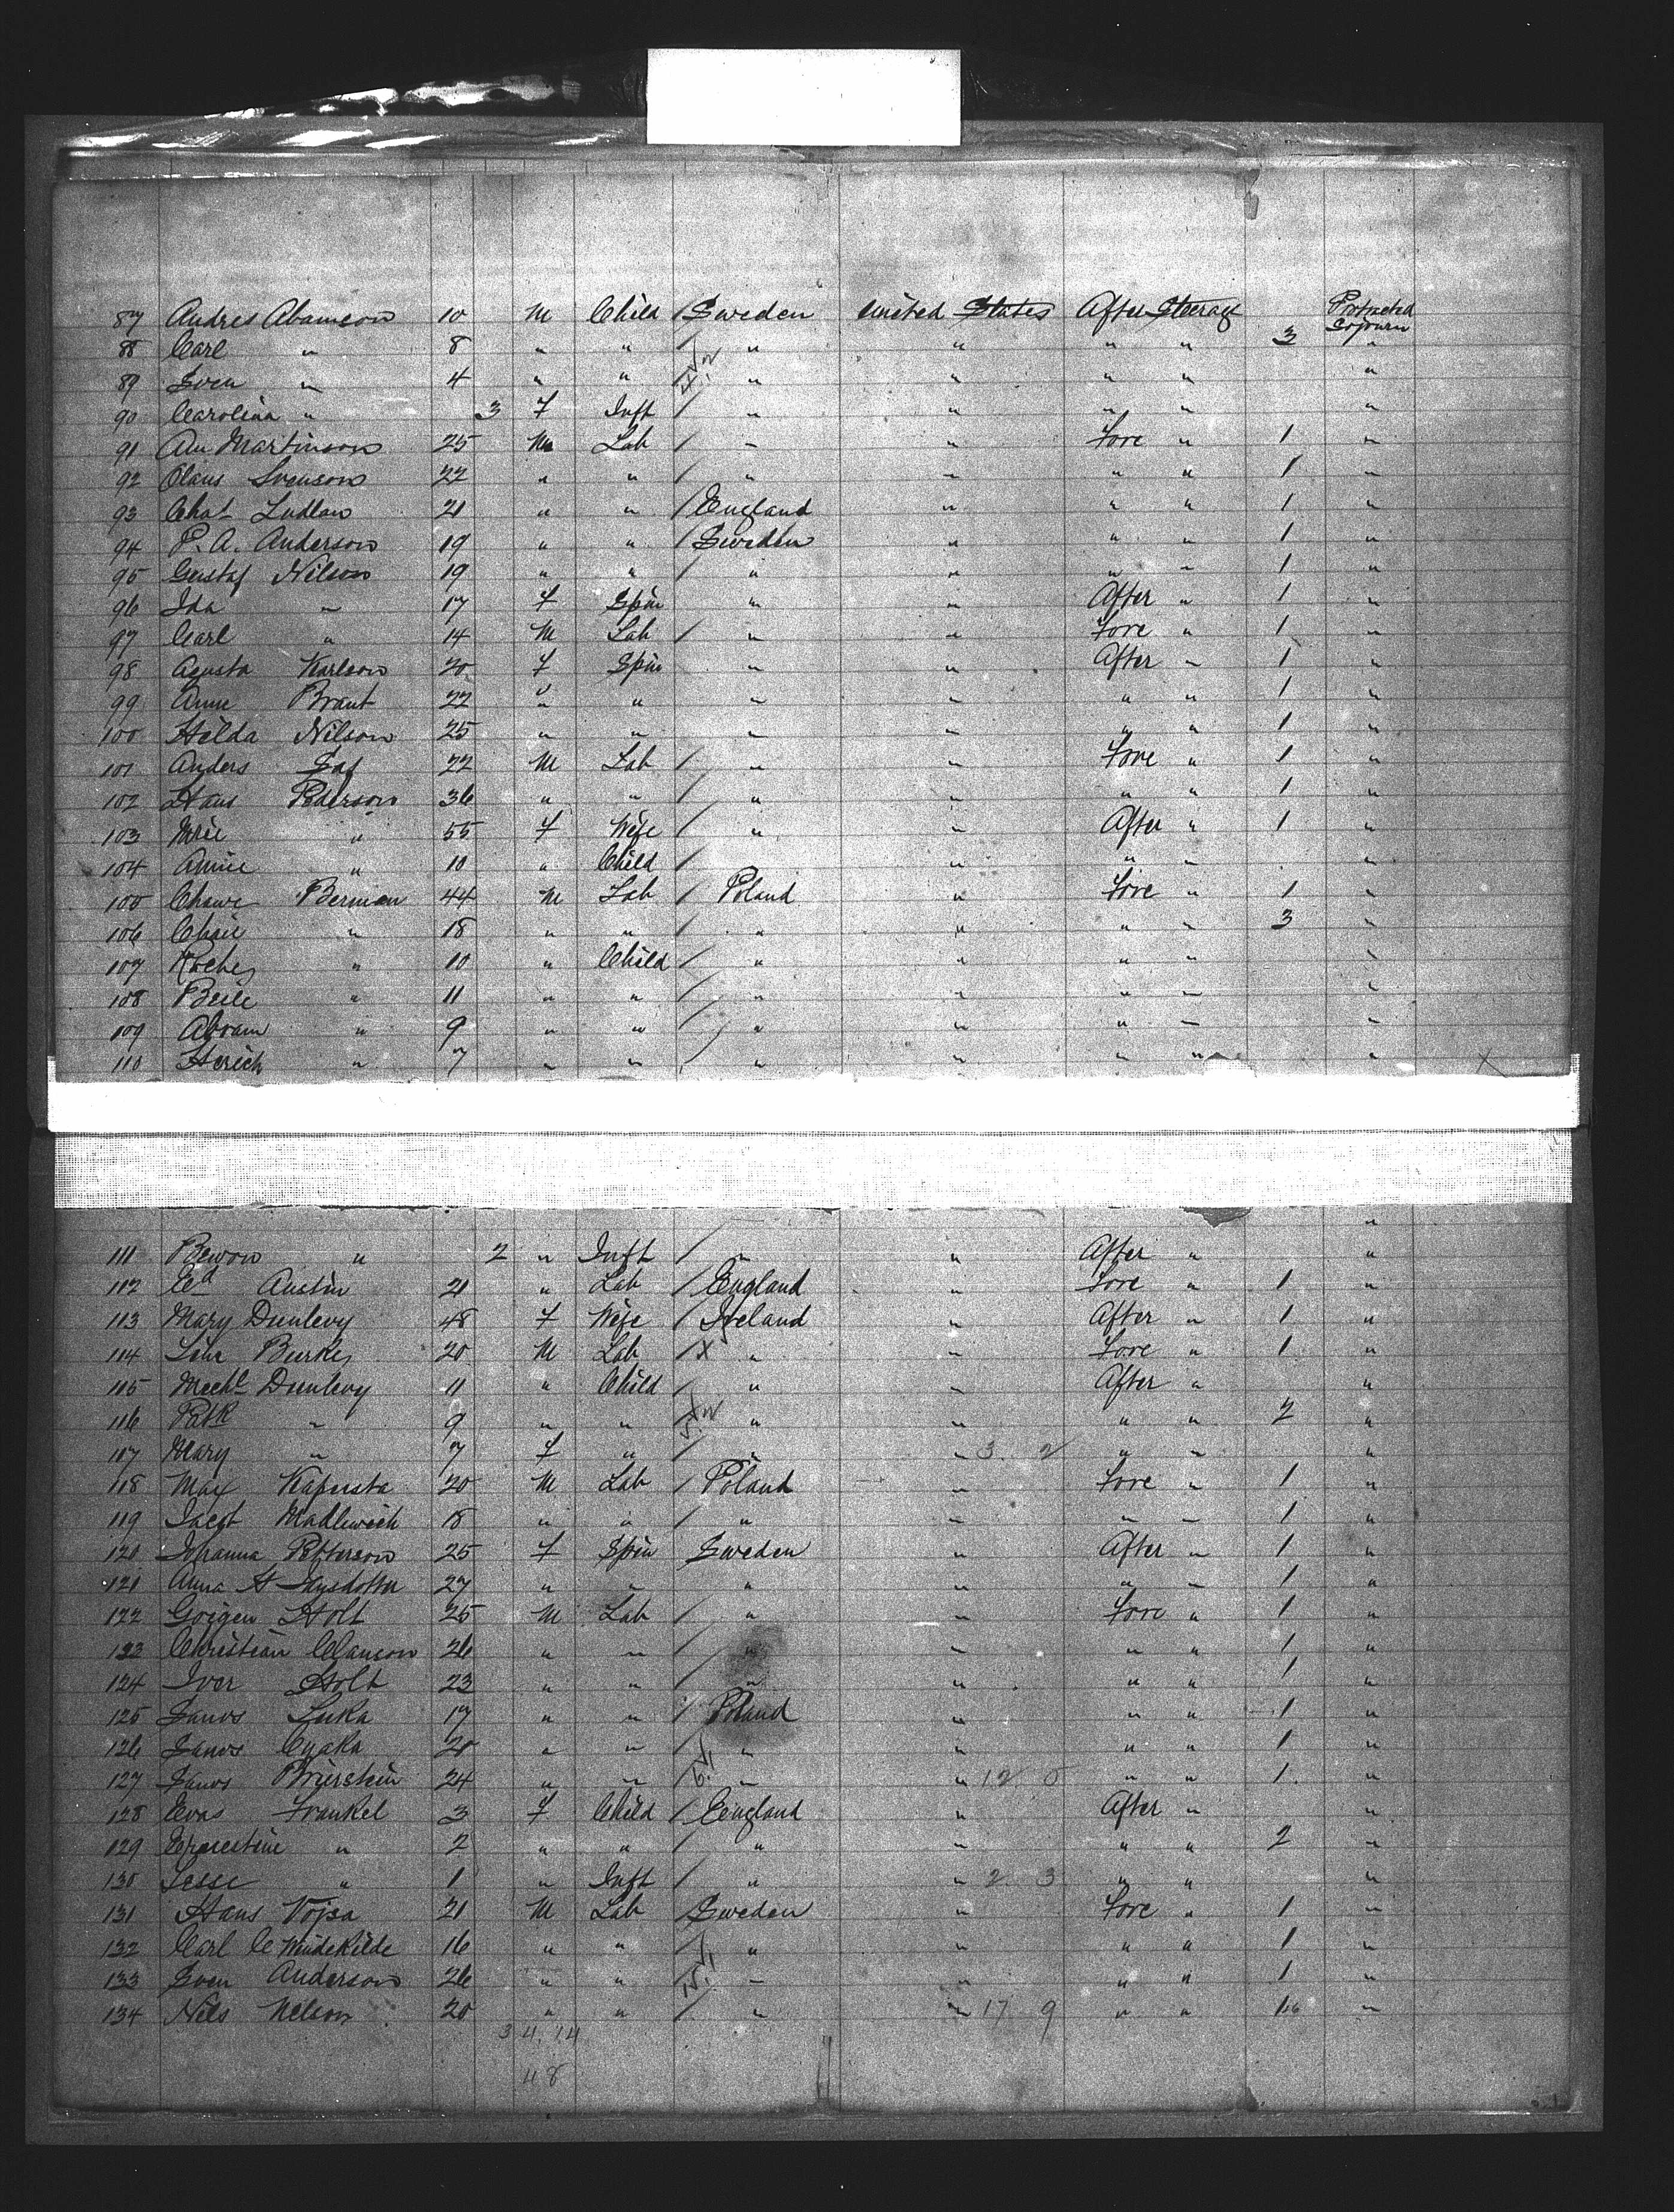 87 Andres Abamson 10 M Child / Sweden United States After Steerage Protracted Sojourn
88 Carl " 8 " " / " " " " 3 "
89 Sven " 4 " " " " " " "
90 Carolina " 3 F Inft / " " " " "
91 Martinson 25 M Lab / " " Fore " 1 "
92 Olaus Svenson 22 " " / " " " " 1 "
93 Chas Ludlow 21 " " / England " " " 1 "
94 P. A. Anderson 19 " " / Sweden " " " 1 "
95 Gustaf Nilson 19 " " / " " " " 1 "
96 Ida " 17 F Spin " " After " 1 "
97 Carl " 14 M Lab / " " Fore " 1 "
98 Agusta Karlson 20 F Spin " " After " 1 "
99 Anne Brant 22 " " " " " " 1 "
100 Hilda Nilson 25 " " " " " " 1 "
101 Anders 22 M Lab / " " Fore " 1 "
102 Hans Pederson 36 " " / " " " " 1 "
103 " 55 F Wife / " " After " 1 "
104 Annie " 10 " Child / " " " "
105 Berman 44 M Lab / Poland " Fore " 1 "
106 " 18 " " / " " " " 3 "
107 " 10 " Child / " " " " "
108 Beile " 11 " " / " " " " "
109 Abram " 9 " " / " " " " "
110 Herich " 7 " " / " " " " " X
"
111 " 2 " Inft / " " After " "
112 Ed Austin 21 " Lab / England " Fore " 1 "
113 Mary Dunlevy 48 F Wife / Ireland " After " 1 "
114 Burke 20 M Lab / X " " Fore " 1 "
115 Michl Dunlevy 11 " Child / " " After " "
116 Patk " 9 " " " " " " 2 "
117 Mary " 7 F " / " " 3 2 " " "
118 Max Kapusta 20 M Lab / Poland " Fore " 1 "
119 Jacob 18 " " / " " " " 1 "
120 Johanna Petterson 25 F Spin Sweden " After " 1 "
121 Anna 27 " " " " " " 1 "
122 Holt 25 M Lab / " " Fore " 1 "
123 Christian Clauson 26 " " / " " " " 1 "
124 Iver Holt 23 " " / " " " " 1 "
125 Janos Luka 17 " " / Poland " " " 1 "
126 Janos 20 " " / " " " " 1 "
127 Janos 24 " " " " 12 0 " " 1 "
128 Evas Frankel 3 F Child / England " After " "
129 Ernestine " 2 " " / " " " " 2 "
130 Jesse " 1 " Inft / " " 2 3 " " "
131 Hans 21 M Lab / Sweden " Fore " 1 "
132 Carl C 16 " " " " " " 1 "
133 Sven Anderson 26 " " " " " " 1 "
134 Nils Nelson 20 " " / " " 17 9 " " 1 "
34 14
48